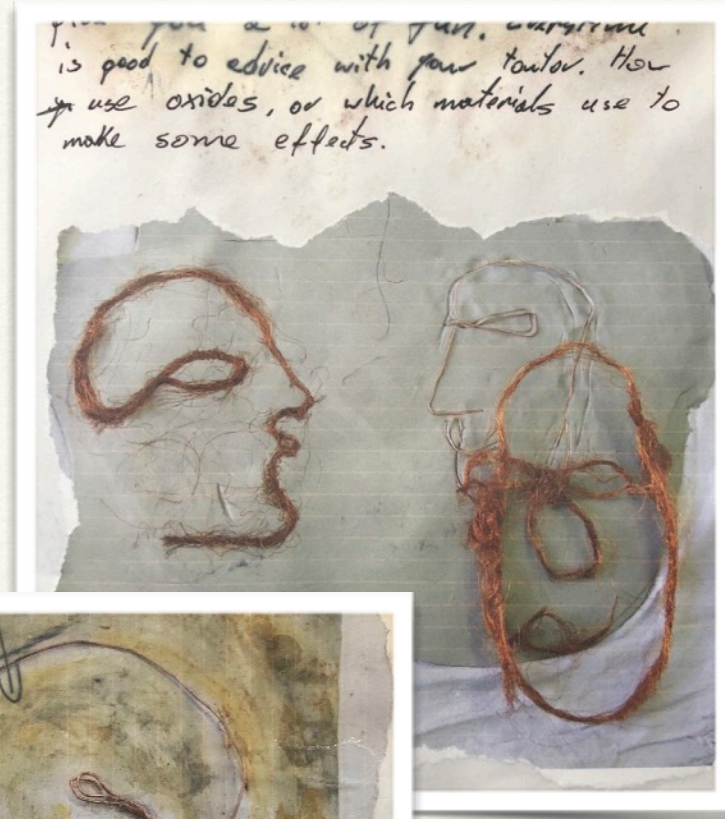 you a lot of fun. Everytime
is good to edvice with your toutor. How
use oxides, or which materials use to
make some effects.